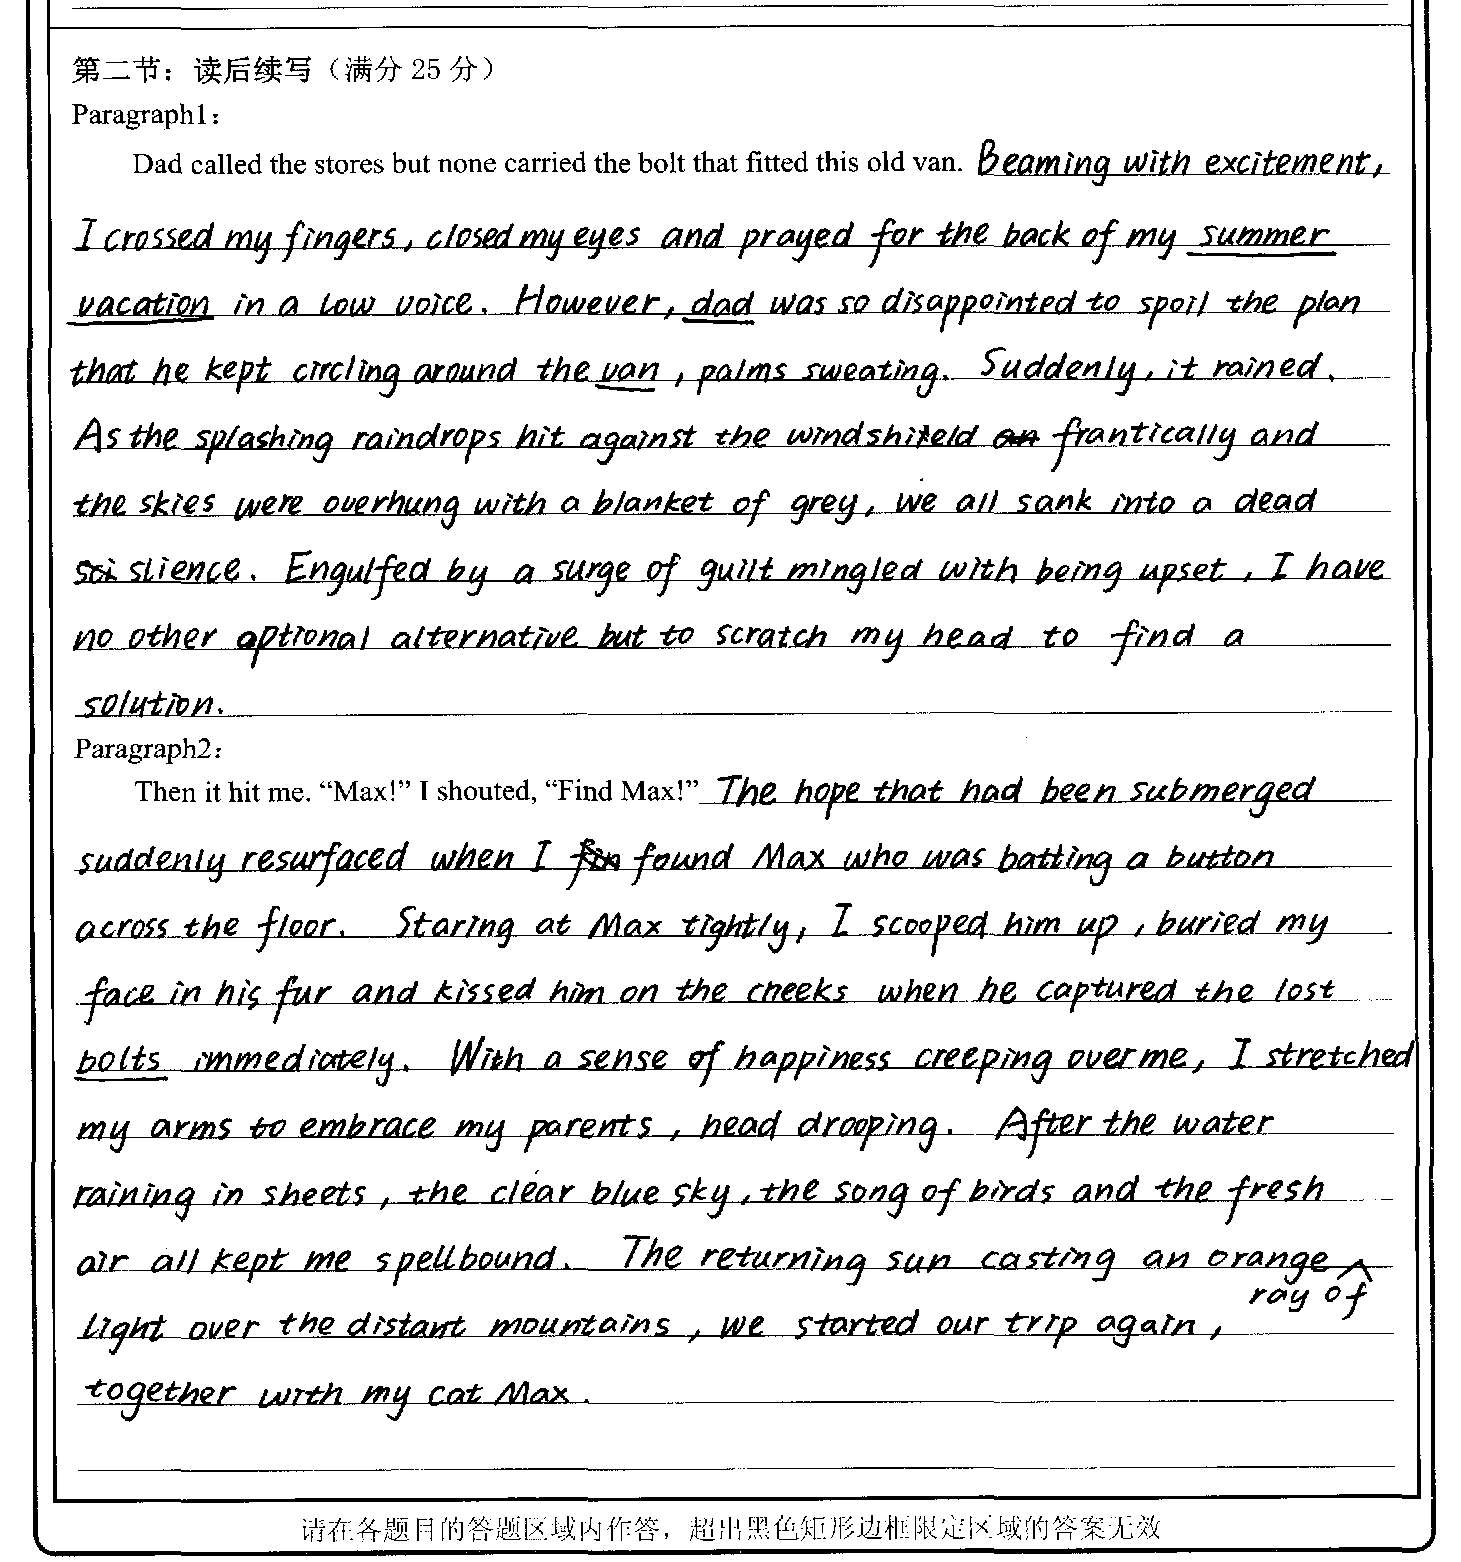 第二节：读后续写（满分 25 分）
Paragraph1:
Dad called the stores but none carried the bolt that fitted this old van. Beaming with excitement,
I crossed my fingers, closed my eyes and prayed for the back of my summer
vacation in a low voice. However, dad was so disappointed to spoil the plan
that he kept circling around the van, palms sweating. Suddenly, it rained.
As the splashing raindrops hit against the windshiteld an frantically and
the skies were overhung with a blanket of grey, we all sank into a dead
sci slience. Engulfed by a surge of guilt mingled with being upset, I have
no other optional alternative but to scratch my head to find a
solution.
Paragraph2:
Then it hit me. “Max!” I shouted, “Find Max!” The hope that had been submerged
suddenly resurfaced when I fin found Max who was batting a button
across the floor. Staring at Max tightly, I scooped him up, buried my
face in his fur and kissed him on the cheeks when he captured the lost
bolts immediately. With a sense of happiness creeping over me, I stretched
my arms to embrace my parents, head drooping. After the water
raining in sheets, the clear blue sky, the song of birds and the fresh
air all kept me spellbound. The returning sun casting an orange
ray of
light over the distant mountains, we started our trip again,
together with my cat Max.
请在各题目的答题区域内作答，超出黑色矩形边框限定区域的答案无效